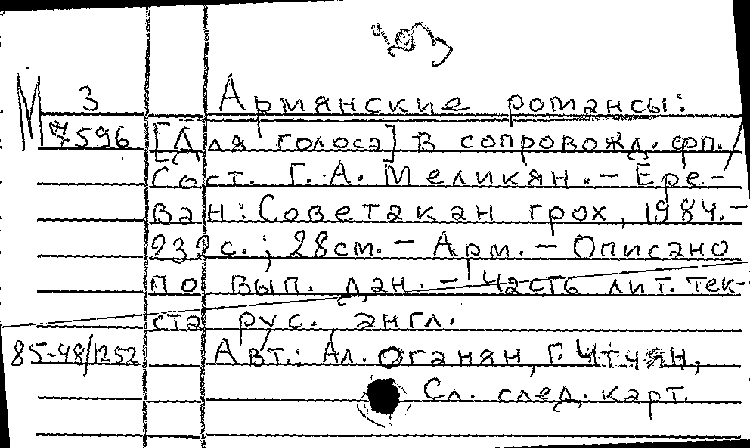 М З Армянские романсы:
7596 [Для голоса] в сопровожд. фп. /
Сост. Г. А. Меликян. – Ере-
ван: Советакан грох, 1984. –
232 с.; 28 см. – Арм. – Описано
по вып. дан. – Часть лит. тек-
ста рус., англ.
85-48/1252 Авт.: Ал. Оганян, Г. Чтчян,
См. след. карт.